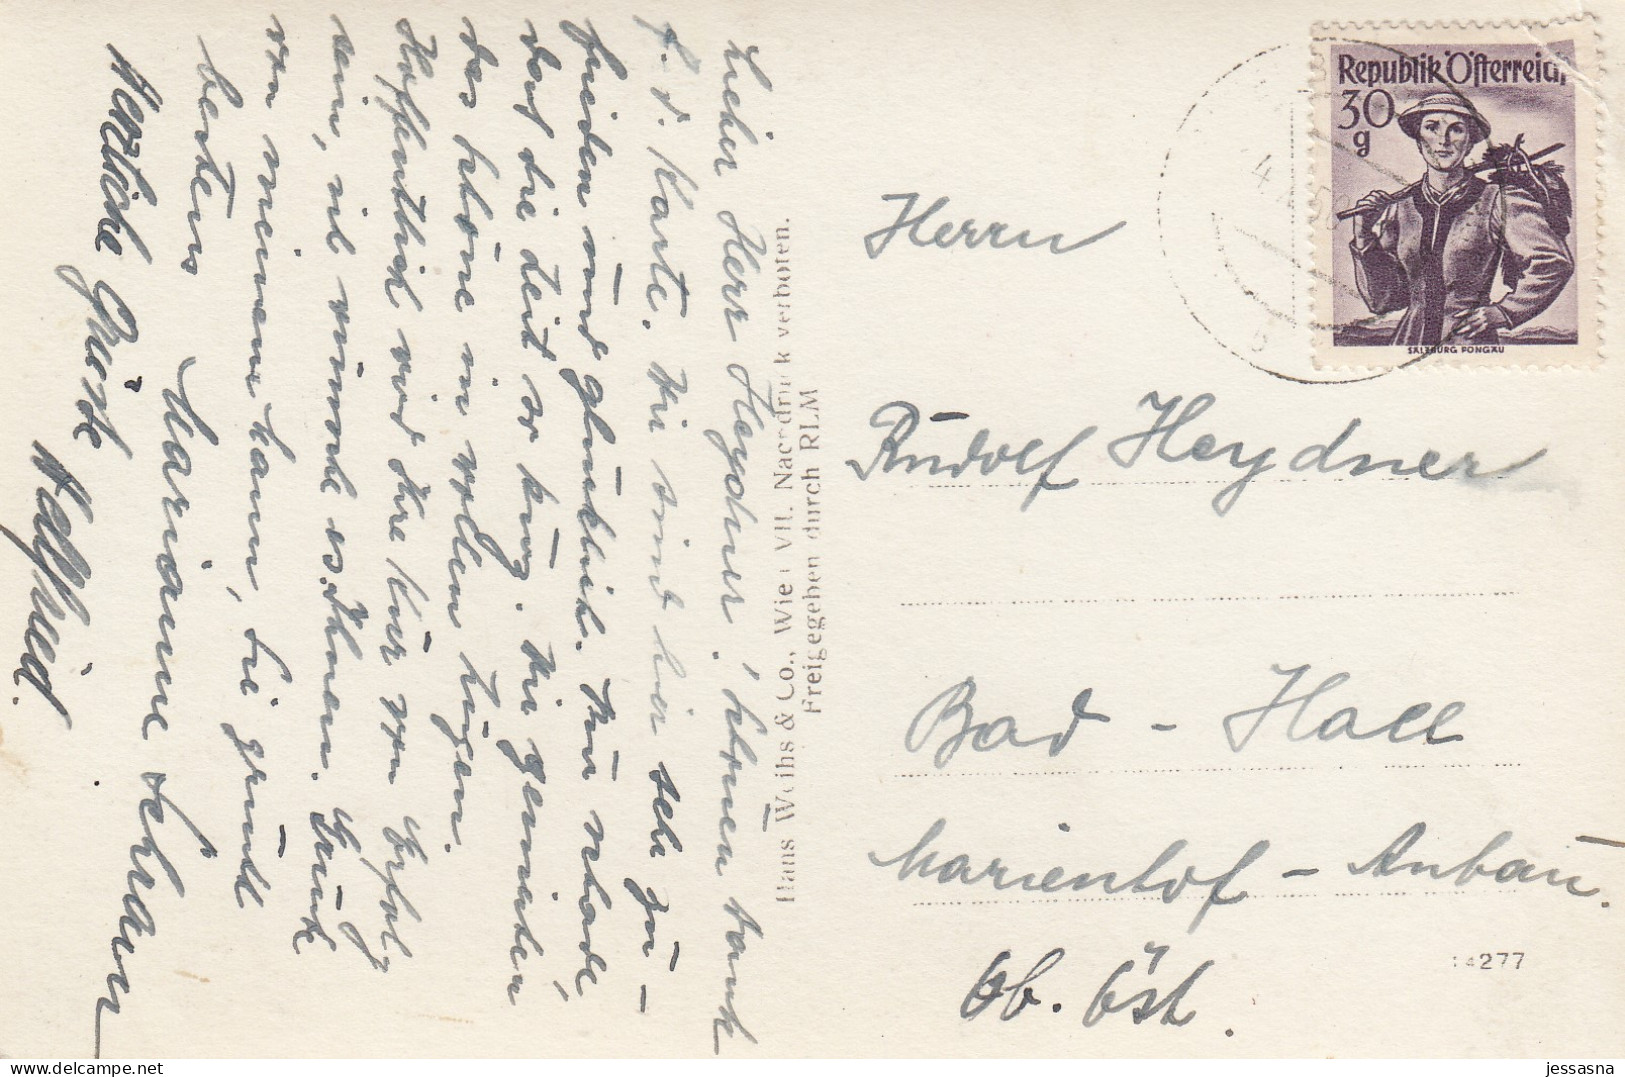 Lieber Herr Heydner, schönen Dank
f. d. Karte. Wir sind hier sehr zu-
frieden und glücklich. Nur schade,
daß die Zeit so kurz. Wir genießen
das schöne in vollen Zügen.
Hoffentlich wird Ihre Kur von Erfolg
sein, ich wünsche es Ihnen.
von meinem Mann, Sie grüßt
bestens
Marianne Schramm
Herzliche Grüße
Hans Weihs & Co., Wien VII. Nachdruck verboten.
Freigegeben durch RLM
Republik Österreich
30
g
SALZBURG PONGAU
Herrn
Rudolf Heydner
Bad - Hall
Marienhof - Anbau.
Ob. Öst.
14277
jessasna